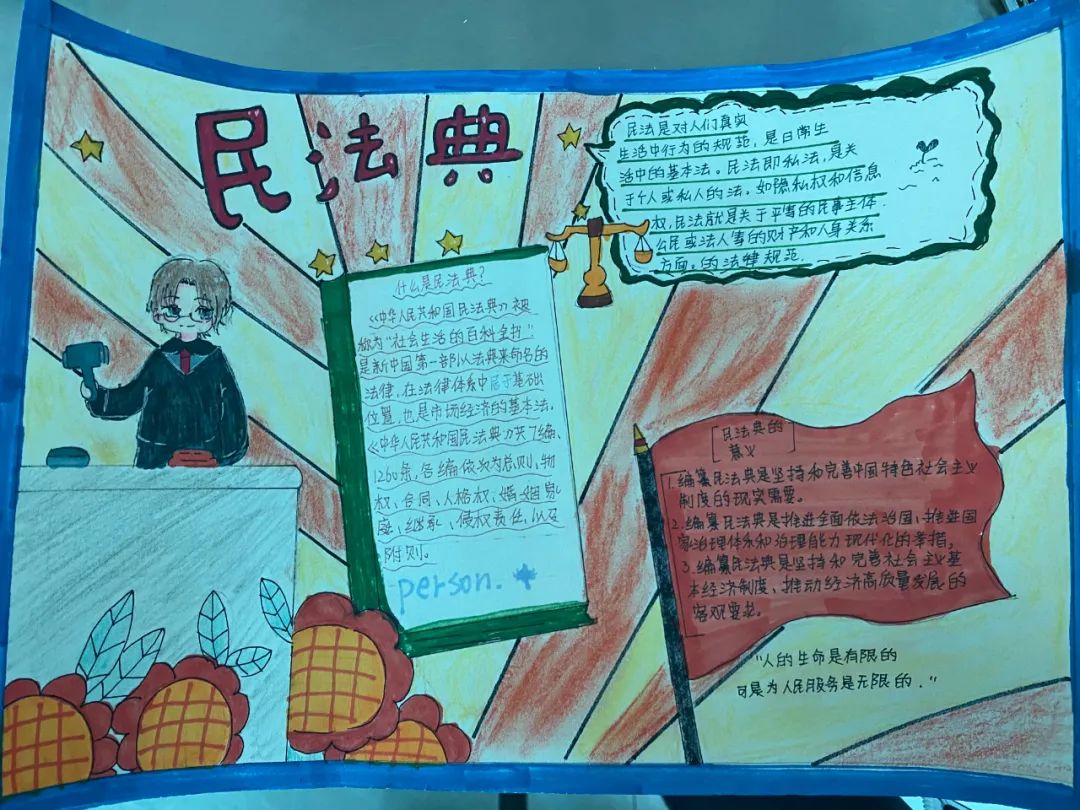 民法典
民法是对人们真实
生活中行为的规范，是日常生
活中的基本法。民法即私法，是关
于个人或私人的法，如隐私权和信息
权，民法就是关于平等的民事主体.
公民或法人等的财产和人身关系
方面。的法律规范.
什么是民法典？
《中华人民共和国民法典》被
称为“社会生活的百科全书”
是新中国第一部以法典来命名的
法律，在法律体系中居于基础
位置，也是市场经济的基本法。
《中华人民共和国民法典》共7编、
1260条，各编依次为总则、物
权、合同、人格权、婚姻家
庭、继承、侵权责任、以及
附则。
person.
民法典的
意义
1.编纂民法典是坚持和完善中国特色社会主义
制度的现实需要。
2.编纂民法典是推进全面依法治国、推进国
家治理体系和治理能力现代化的举措，
3.编纂民法典是坚持和完善社会主义基
本经济制度、推动经济高质量发展的
客观要求。
“人的生命是有限的
可是为人民服务是无限的.”